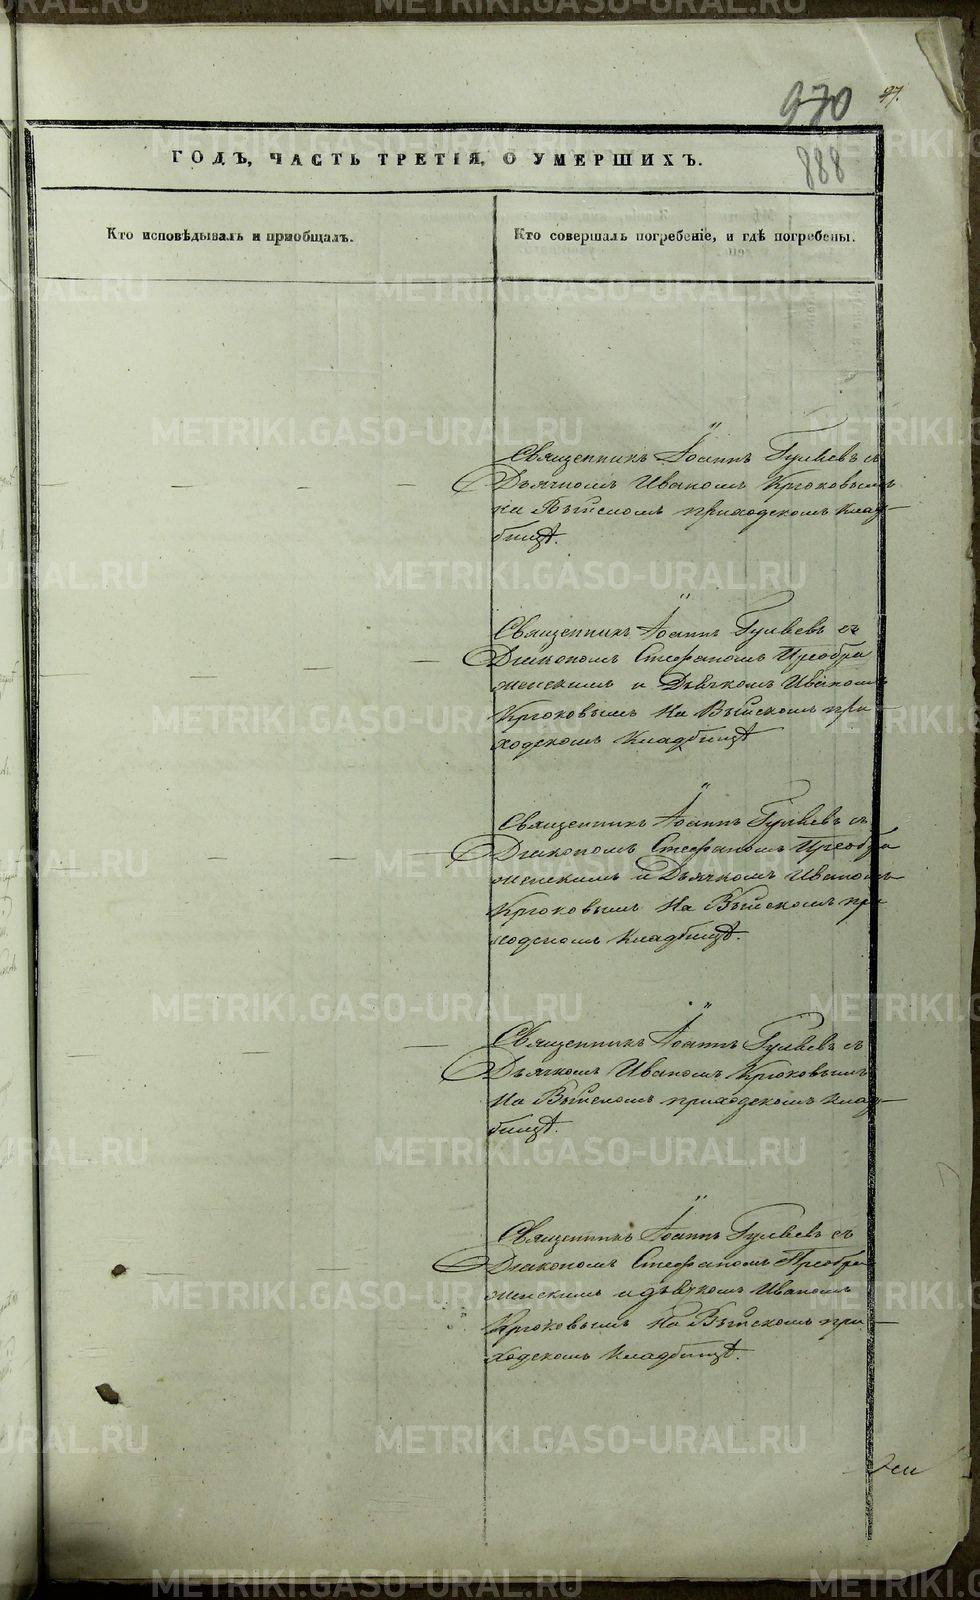 970
97.
888
ГОДЪ, ЧАСТЬ ТРЕТІЯ, О УМЕРШИХЪ.
Кто исповѣдывалъ и пріобщалъ.
Кто совершалъ погребеніе, и гдѣ погребены.
Священникъ Іоаннъ Гуляевъ съ
Дьячкомъ Иваномъ Крюковымъ
на Выйскомъ приходскомъ клад-
бищѣ.
Священникъ Іоаннъ Гуляевъ съ
Діакономъ Стефаномъ Преобра
женскимъ и Дьячкомъ Иваномъ
Крюковымъ на Выйскомъ при-
ходскомъ кладбищѣ
Священникъ Іоаннъ Гуляевъ съ
Діакономъ Стефаномъ Преобра
женскимъ и Дьячкомъ Иваномъ
Крюковымъ на Выйскомъ при
ходскомъ кладбищѣ.
Священникъ Іоаннъ Гуляевъ съ
Дьячкомъ Иваномъ Крюковымъ
на Выйскомъ приходскомъ клад-
бищѣ.
Священникъ Іоаннъ Гуляевъ съ
Діакономъ Стефаномъ Преобра
женскимъ и дьячкомъ Иваномъ
Крюковымъ на Выйскомъ при-
ходскомъ кладбищѣ.
METRIKI.GASO-URAL.RU